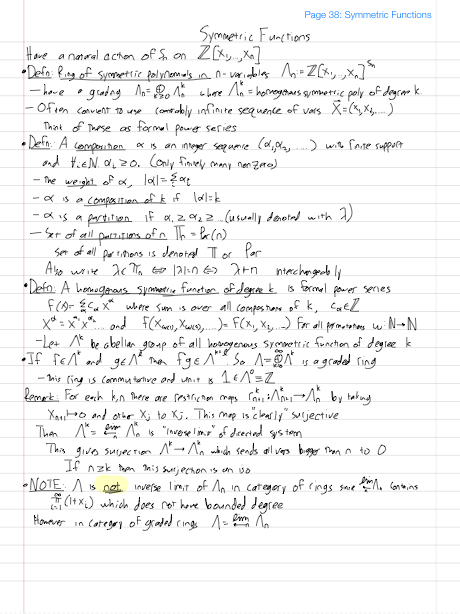 Page 38: Symmetric Functions
Symmetric Functions
Have a natural action of Sₙ on ℤ[x₁,...,xₙ]
• Defn: Ring of symmetric polynomials in n-variables Λₙ := ℤ[x₁,...,xₙ]^{Sₙ}
– have a grading Λₙ = ⊕_{k≥0} Λₙ^k where Λₙ^k = homogenous symmetric poly of degree k.
– Often convient to use countably infinite sequence of vars X⃗ = (x₁,x₂,....)
Think of these as formal power series
• Defn: A composition α is an integer sequence (α₁,α₂,....) with finite support
and ∀i∈ℕ αᵢ ≥ 0. (only finitely many nonzero)
– the weight of α, |α| = Σαᵢ
– α is a composition of k if |α|=k
– α is a partition if α₁ ≥ α₂ ≥ ... (usually denoted with λ)
– Set of all partitions of n 𝕋ₙ = Par(n)
Set of all partitions is denoted 𝕋 or Par
Also write λ∈𝕋ₙ ⇔ |λ|=n ⇔ λ⊢n interchangeably
• Defn: A homogenous symmetric function of degree k is formal power series
f(x) = Σ_α c_α x^α where sum is over all compositions of k, c_α∈ℤ
x^α = x₁^{α₁} x₂^{α₂} .... and f(x_{ω(1)}, x_{ω(2)},....) = f(x₁, x₂,...) for all permutations ω: ℕ→ℕ
– Let Λ^k be abelian group of all homogenous symmetric function of degree k
• If f∈Λ^k and g∈Λ^l then fg∈Λ^{k+l}. So Λ = ⊕_{k≥0} Λ^k is a graded ring
– this ring is commutative and unit is 1∈Λ⁰=ℤ
Remark: For each k,n there are restriction maps r_{n+1}^k: Λ_{n+1}^k → Λₙ^k by taking
x_{n+1} ↦ 0 and other xⱼ to xⱼ. This map is "clearly" surjective
Then Λ^k = lim← Λₙ^k is "inverse limit" of directed system
This gives surjection Λ^k → Λₙ^k which sends all vars bigger than n to 0
If n≥k then this surjection is an iso
• NOTE: Λ is not inverse limit of Λₙ in category of rings since lim← Λₙ contains
∏_{i=1}^∞ (1+xᵢ) which does not have bounded degree
However in category of graded rings Λ = lim← Λₙ